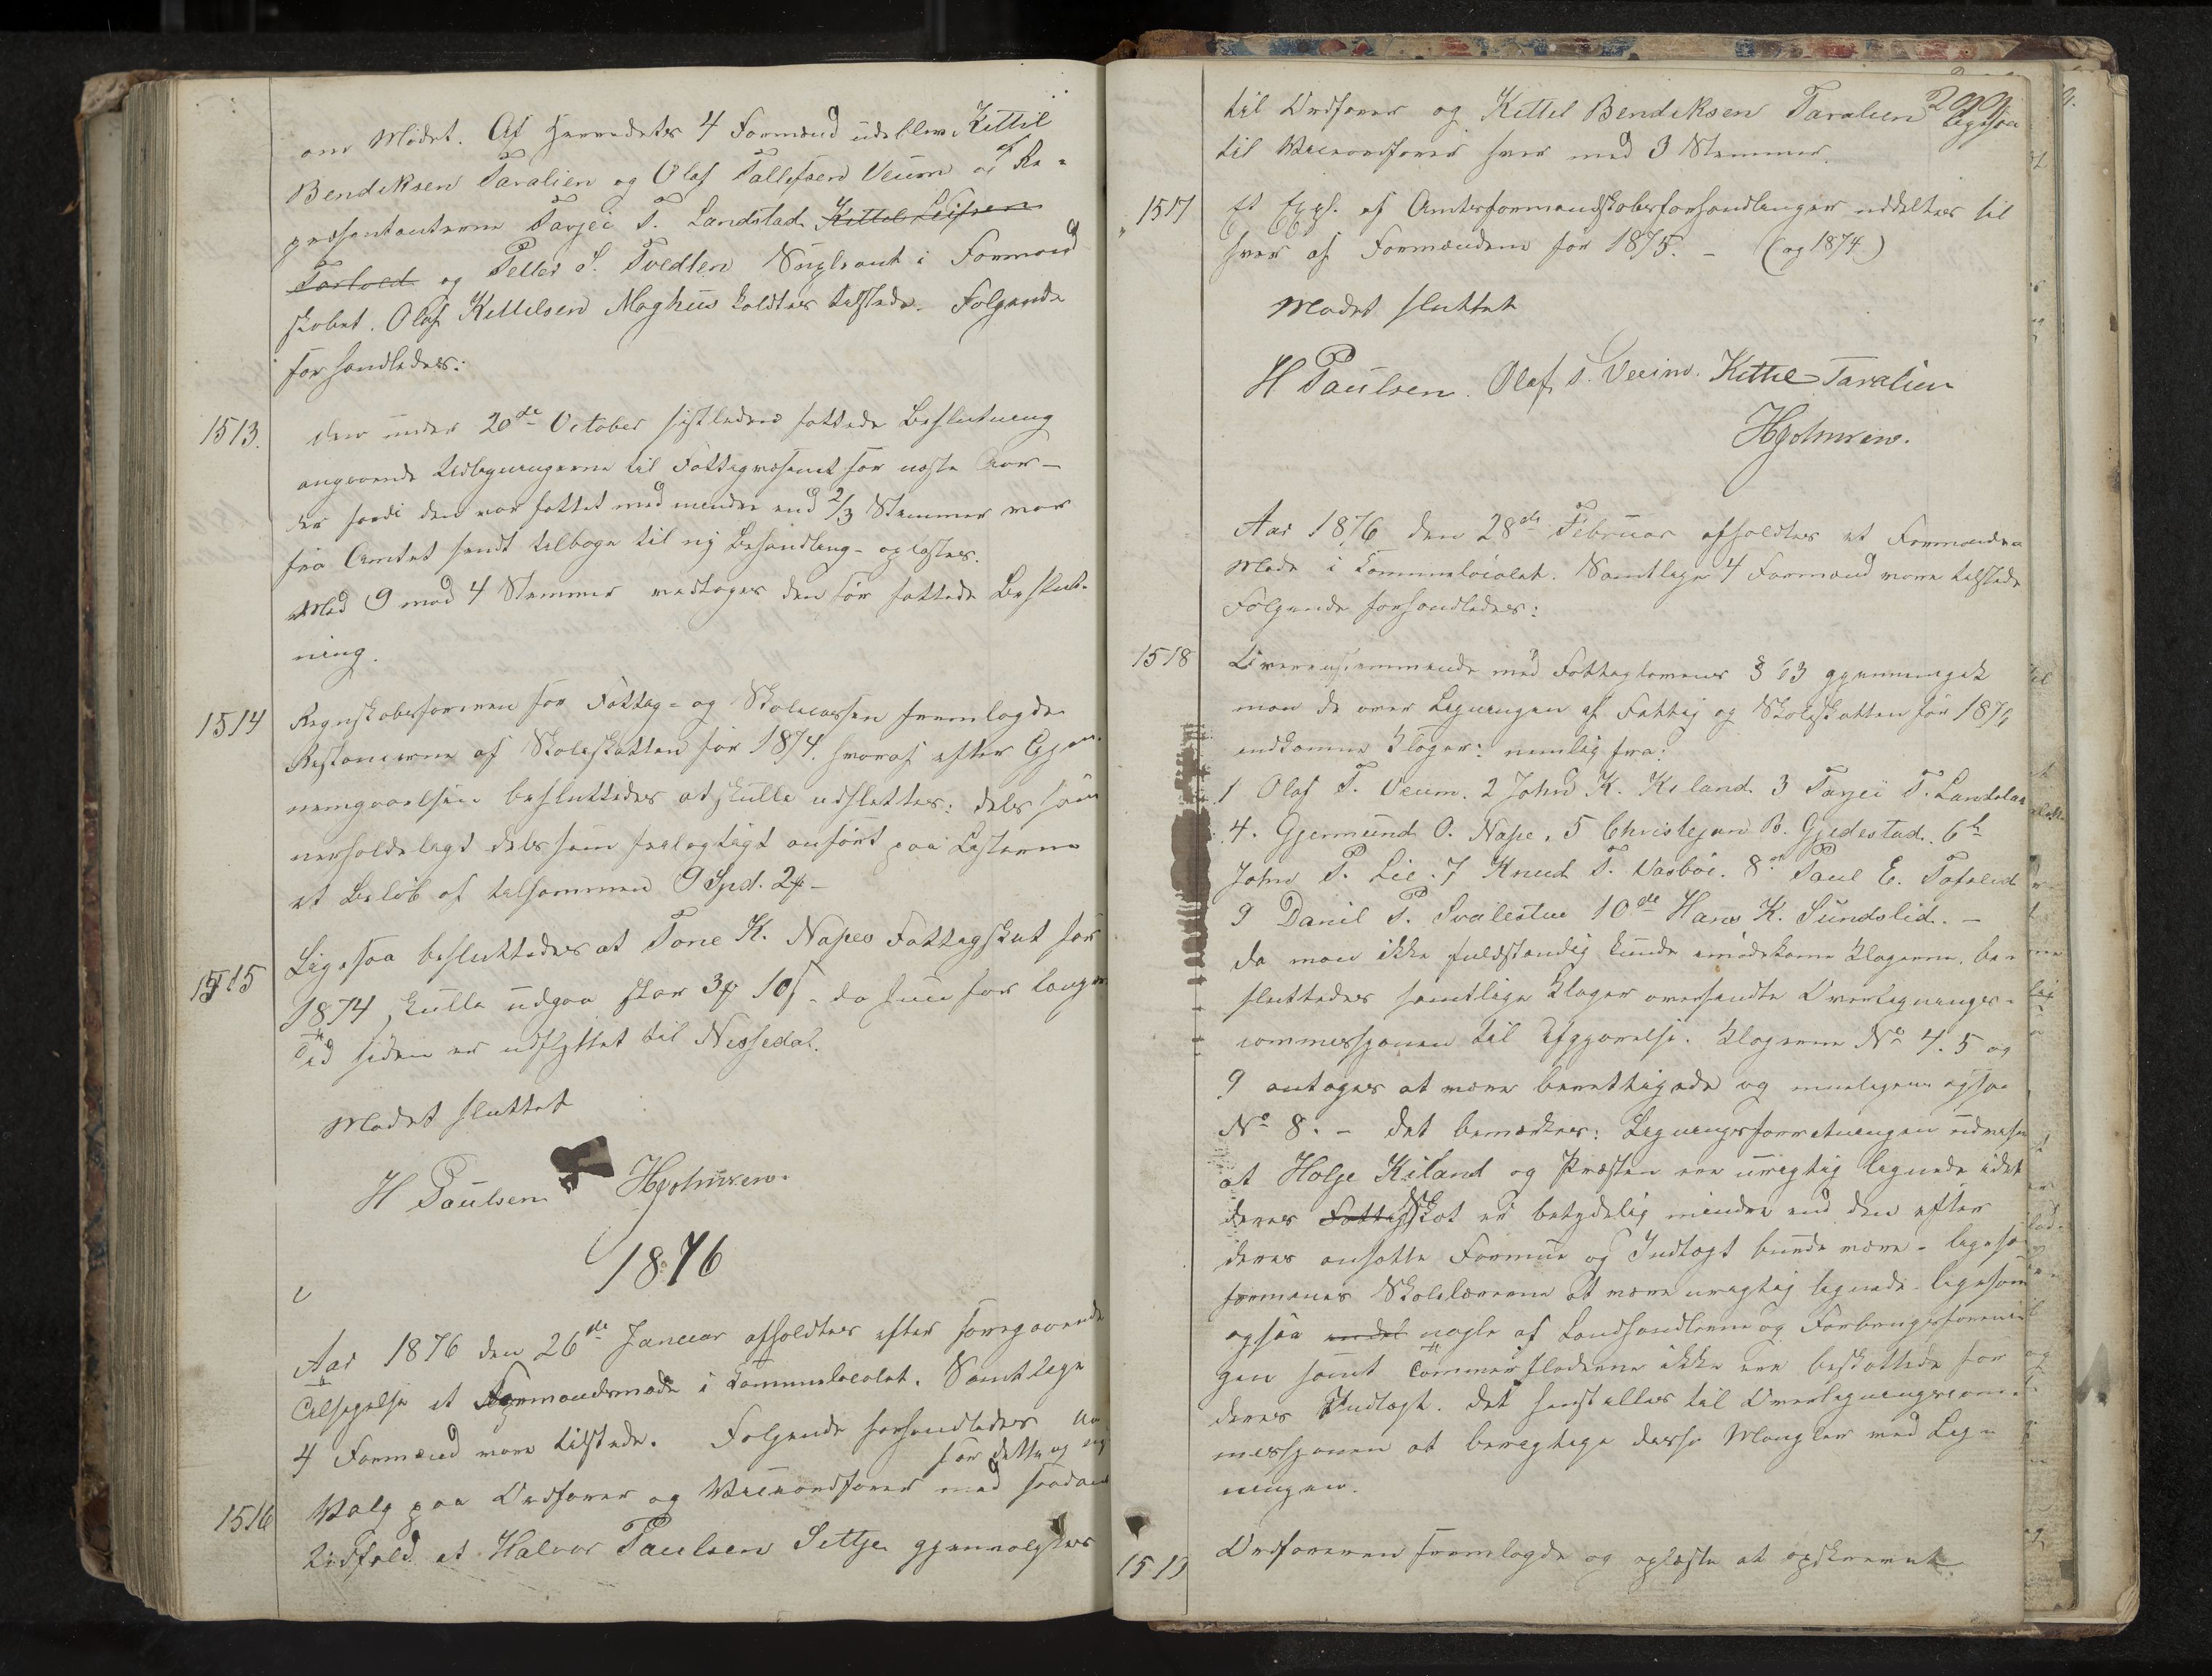 om Mødet. Af Herredets 4 Formænd udeblev Kittil
Bendiksen Taralien og Olaf Tallefsen Veum af Re-
præsentanterne Tarjei T. Landstad Kittel Leifsen
Tortved og Peller S. Tvedten Supleant i Formand
skabet. Olaf Kittilsen Moghus holdtes tilstede. Følgende
forhandledes:
1513. Den under 20de October sistleden fattede Beslutning
angaaende Udligningerne til Fattigvæsenet for næste Aar –
der fordi den var fattet med mindre end 2/3 Stemmer var
fra Amtet sendt tilbage til ny Behandling – oplæstes.
Med 9 mod 4 Stemmer vedtoges den før fattede Beslut-
ning.
1514 Regnskabsføreren for Fattig- og Skolecassen fremlagde
Restancerne af Skoleskatten for 1874. hvoraf efter Gjen-
nemgaaelsen besluttedes at skulle udslettes: dels som
uerholdeligt dels som feilagtigt anført paa Listerne
et Beløb af tilsammen 9 Spd. 2 –
1515 Ligesaa besluttedes at Tone K. Napes Fattigskat for
1874 skulle udgaa stor 3 10 – da hun for længer
Tid siden er udflyttet til Nissedal.
Mødet sluttet
H Paulsen Hjolmxen.
1876
Aar 1876 den 26de Januar afholdtes efter foregaaende
Tilsigelse et Formandsmøde i Communelocalet. Samtlige
4 Formænd vare tilstede. Følgende forhandledes
for dette og
1516 Valg paa Ordfører og Viceordfører med saadant
Udfald at Halvor Paulsen Settje gjenvalgtes
299.
til Ordfører og Kittel Bendiksen Taralien ligesaa
til Viceordfører hver med 3 Stemmer.
1517 Et Expl. af Amtsformandskabsforhandlinger uddeltes til
hver af Formændene for 1875. – (og 1874)
Mødet sluttet
H Paulsen. Olaf T. Veum. Kittil Taralien
Hjolmxen.
Aar 1876 den 28de Februar afholdtes et Formands
Møde i Communelocalet. Samtlige 4 Formænd vare tilstede
Følgende forhandledes:
1518 Overensstemmende med Fattiglovens § 63 gjennemgik
man de over Ligningen af Fattig og Skoleskatten for 1876
indkomne Klager: nemlig fra:
1 Olaf T. Veum. 2 John K. Kiland 3 Tarjei T. Landstad
4. Gjermund O. Nape. 5 Christejan B. Gjedestad. 6te
John P. Lie. 7 Knud T. Vasboe. 8de Paul E. Tofslid
9 Danil P. Svalestue 10de Hans K. Sundslid. –
Da man ikke fuldstændig kunde imødekomme Klagerne, be-
sluttedes samtlige Klager oversendte Overlignings-
commissjonen til Afgjørelse. Klagerne No 4. 5 og
9 antages at være berettigede og muligens ogsaa
No 8. – Det bemærkes: Ligningsforretningen udviser
at Holje Kiland og Præsten ere urigtig lignede idet
deres Fattig Skat er betydelig mindre end den efter
deres ansatte Formue og Indtægt burde være – ligesaa
formenes Skolelærerne at være urigtig lignede – ligesom
ogsaa endel nogle af Landhandlerne og Forbrugsforenin
gen samt Tømmerfløderne ikke ere beskattede for
deres Indtægt. Det henstilles til Overligningscom-
missjonen at berigtige disse Mangler ved Lig-
ningen.
1519 Ordføreren fremlagde og oplæste et